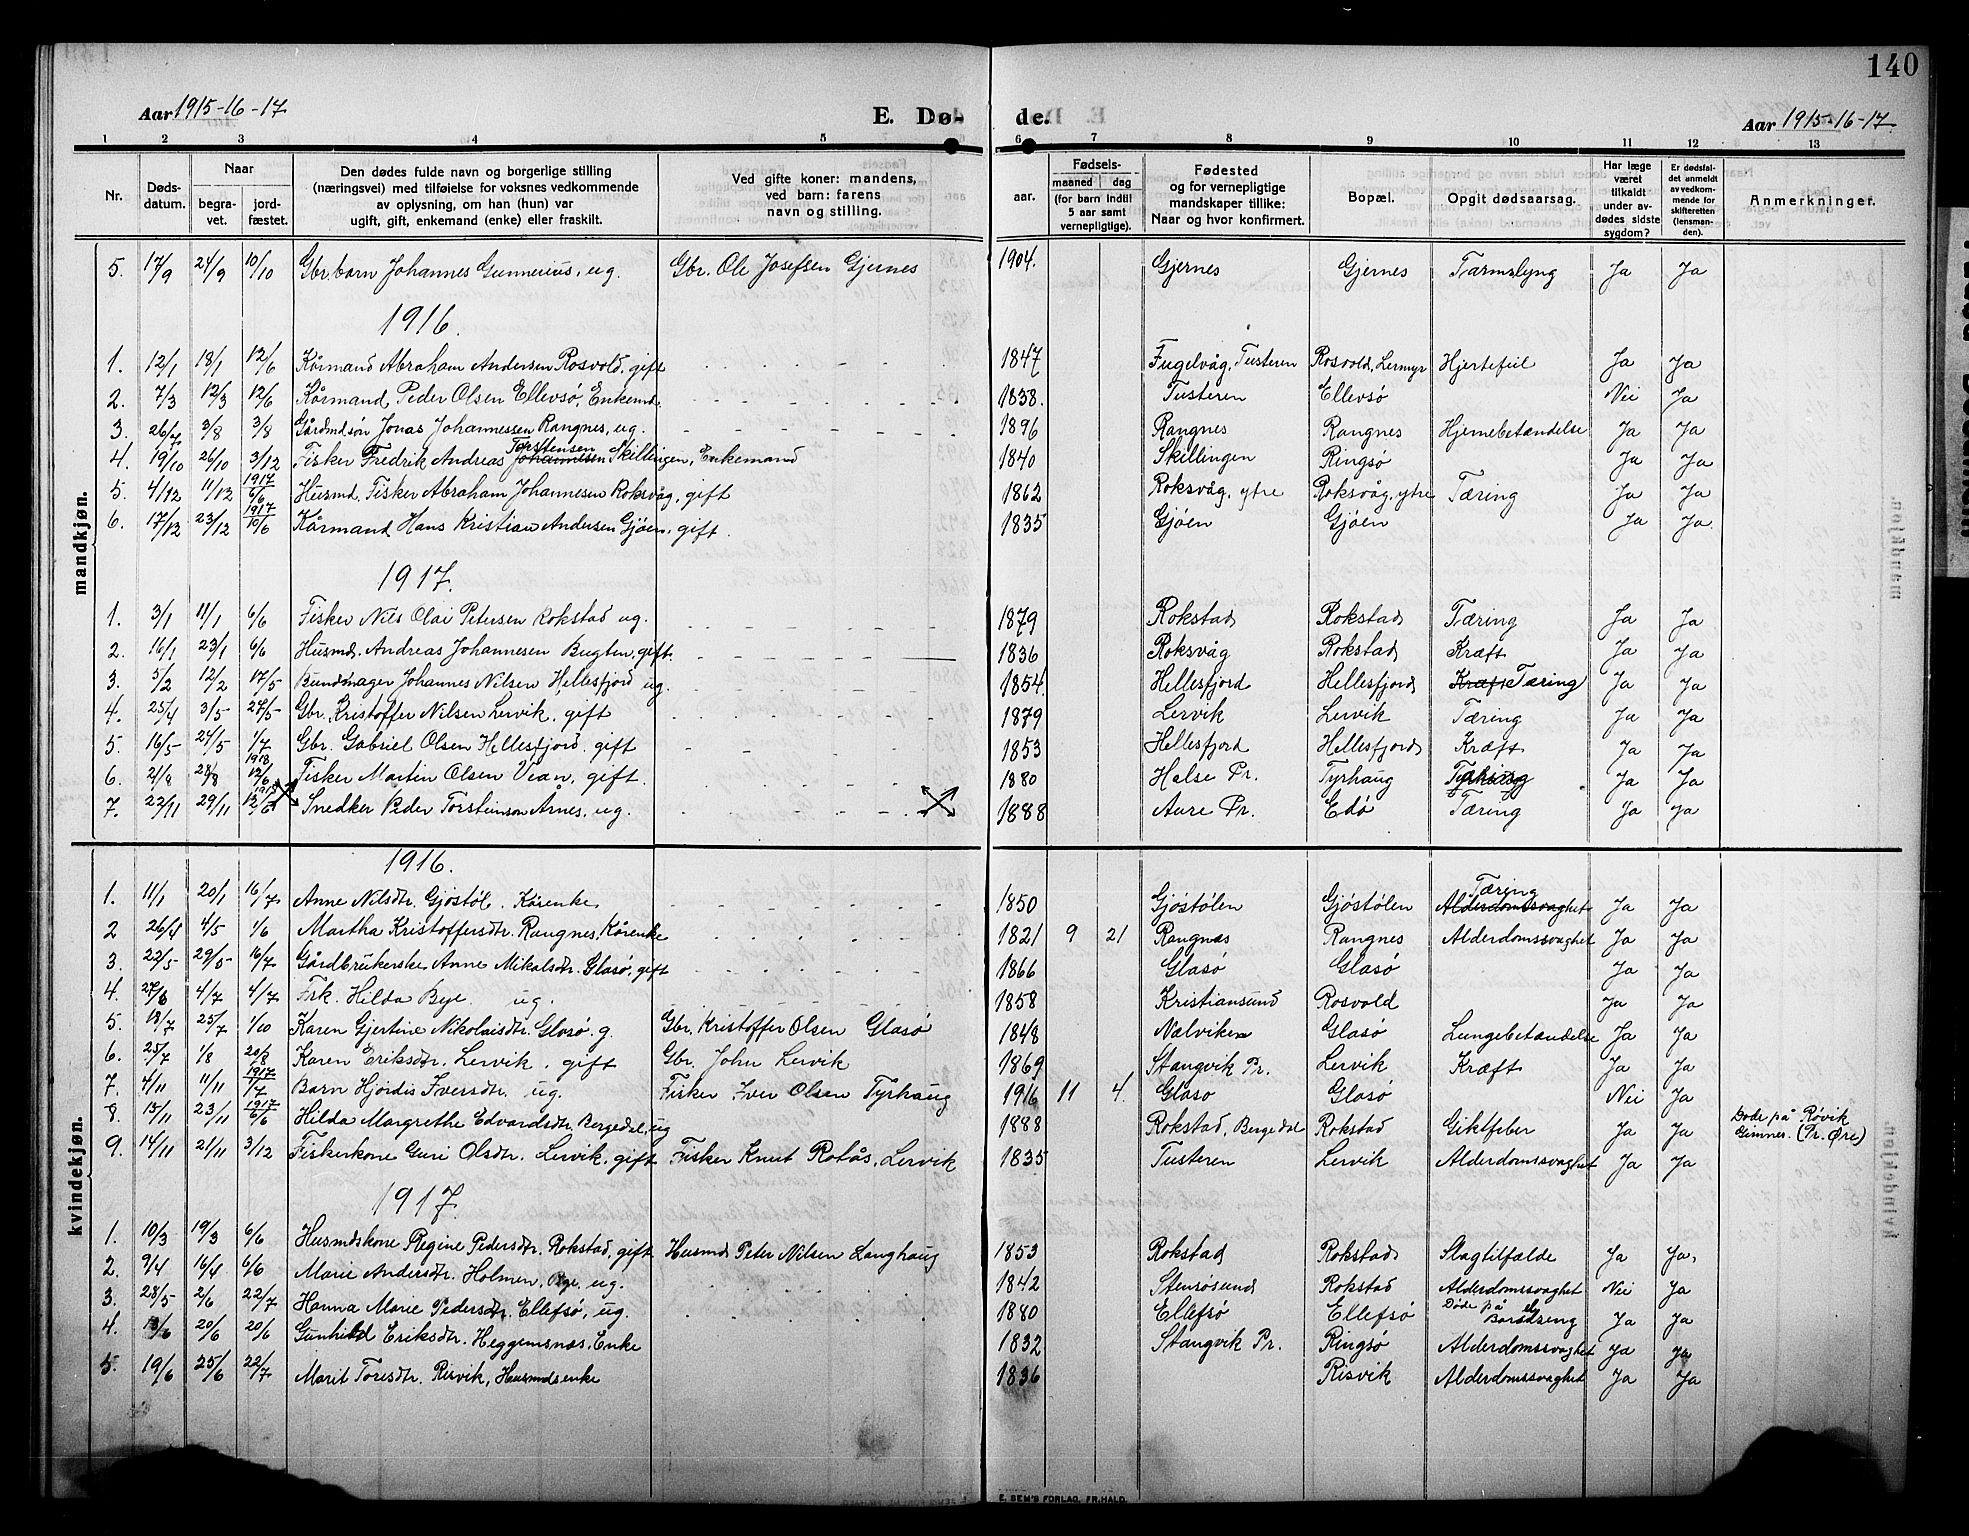 140
Aar 1915-16-17
E. Dø-
de.
Aar 1915-16-17.
1 2 3 4 5 6 7 8 9 10 11 12 13
Nr. | Dødsdatum. | Naar begravet. | jordfæstet. | Den dødes fulde navn og borgerlige stilling (næringsvei) med tilføielse for voksnes vedkommende av oplysning, om han (hun) var ugift, gift, enkemand (enke) eller fraskilt. | Ved gifte koner: mandens, ved barn: farens navn og stilling. | aar. | Fødsels- maaned dag (for barn indtil 5 aar samt vernepligtige). | Fødested og for vernepligtige mandskaper tillike: Naar og hvor konfirmert. | Bopæl. | Opgit dødsaarsag. | Har læge været tilkaldt under avdødes sidste sygdom? | Er dødsfaldet anmeldt av vedkommende for skifteretten (lensmanden). | Anmerkninger.
mandkjøn.
5. 17/9 24/9 10/10 Gbr. barn Johannes Gunnerius, ug. Gbr. Ole Josefsen Gjernes 1904. Gjernes Gjernes Tarmslyng Ja Ja
1916.
1. 12/1 18/1 12/6 Kårmand Abraham Andersen Rosvold, gift 1847 Fugelvåg, Tusteren Rosvold, Lermyr Hjertefeil Ja Ja
2. 7/3 12/3 12/6 Kårmand Peder Olsen Ellevsø, Enkemd. 1838. Tusteren Ellevsø Nei Ja
3. 26/7 3/8 3/8 Gårdmdsøn Jonas Johannessen Rangnes, ug. 1896 Rangnes Rangnes Hjernebetændelse Ja Ja
4. 19/10 26/10 3/12 Fisker Fredrik Andreas Johannesen Torstensen Skillingen, Enkemand 1840 Skillingen Ringsø Ja Ja
5. 4/12 11/12 1917 6/6 Husmd. Fisker Abraham Johannesen Roksvåg, gift 1862 Roksvåg, ytre Roksvåg, ytre Tæring Ja Ja
6. 17/12 23/12 1917 10/6 Kårmand Hans Kristian Andersen Gjøen, gift 1835 Gjøen Gjøen Ja Ja.
1917.
1. 3/1 11/1 6/6 Fisker Nils Olai Petersen Rokstad ug. 1879 Rokstad Rokstad Tæring Ja Ja
2. 16/1 23/1 6/6 Husmd. Andreas Johannesen Bugten, gift. 1836 Roksvåg Rokstad Kræft Ja Ja
3. 5/2 12/2 17/5 Bundmager Johannes Nilsen Hellesfjord ug. 1854. Hellesfjord Hellesfjord Kræft Tæring Ja Ja
4. 25/4 3/5 27/5 Gbr. Kristoffer Nilsen Lervik. gift 1879 Lervik Lervik Tæring Ja Ja
5. 16/5 24/5 1/7 Gbr. Gabriel Olsen Hellesfjord. gift 1853 Hellesfjord Hellesfjord Kræft Ja Ja
6. 21/8 28/8 1918 12/6 Fisker Martin Olsen Vean, gift. 1880 Halse Pr. Tyrhaug Tæring Ja Ja
7. 22/11 29/11 1918 12/6 Snedker Peder Torsteinson Årnes, ug. 1888 Aure Pr. Edø Tæring Ja Ja
kvindekjøn.
1916.
1. 11/1 20/1 16/7 Anne Nilsdtr. Gjøstøl. Kårenke 1850 Gjøstølen Gjøstølen Alderdomssvaghet Tæring Ja Ja
2 26/4 4/5 1/6 Martha Kristoffersdtr. Rangnes, Kårenke 1821 9 21 Rangnæs Rangnes Alderdomssvaghet Ja Ja
3. 22/5 29/5 16/7 Gårdbrukerske Anne Mikalsdtr. Glasø, gift 1866 Glasø Glasø Ja Ja
4. 27/6 4/7 4/7 Frk. Hilda Bye. ug. 1858 Kristiansund Rosvold Ja Ja
5. 18/7 25/7 1/10 Karen Gjertine Nikolaisdtr. Glasø. g. Gbr. Kristoffer Olsen Glasø 1848 Nalviken Glasø Lungebetændelse Ja Ja
6. 25/7 1/8 20/8 Karen Eriksdtr. Lervik. gift Gbr. John Lervik 1869 Stangvik Pr. Lervik Kræft Ja Ja
7. 4/11 11/11 1917 1/7 Barn Hjørdis Iversdtr. ug. Fisker Iver Olsen Tyrhaug 1916 11 4. Glasø Glasø Nei Ja
8. 15/11 23/11 1917 6/6 Hilda Margrethe Edvardsdtr. Bergedal, ug 1888 Rokstad, Bergedal Rokstad Giktfeber Ja Ja Døde på Røvik Gimnes. (Pr. Øre)
9. 14/11 21/11 3/12 Fiskerkone Guri Olsdtr. Lervik, gift Fisker Knut Rotås, Lervik 1835 Tusteren Lervik Alderdomssvaghet Ja Ja
1917.
1. 10/3 19/3 6/6 Husmdskone Regine Pedersdtr. Rokstad, gift Husmd Peter Nilsen Langhaug 1853 Rokstad Rokstad Slagtilfælde Ja Ja.
2. 9/4 16/4 6/6 Marie Andersdtr. Holmen, Bye. ug. 1842 Stensøsund Rokstad Alderdomssvaghet Nei Ja
3. 28/5 2/6 22/7 Hanna Marie Pedersdtr. Ellefsø, ug. 1880 Ellefsø Ellefsø Døde på Barselseng Ja Ja
4. 13/6 20/6 20/6 Gunhild Eriksdtr. Heggemsnæs, Enke 1832 Stangvik Pr. Ringsø Alderdomssvaghet Ja Ja
5. 19/6 25/6 22/7 Marit Toresdtr. Risvik, Husmdsenke 1836 Risvik Alderdomssvaghet Ja Ja
E. SEM'S FORLAG, FR.HALD.